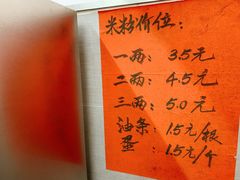 米粉价位:
一两: 3.5元
二两: 4.5元
三两: 5.0元
油条: 1.5元/根
蛋: 1.5元/个